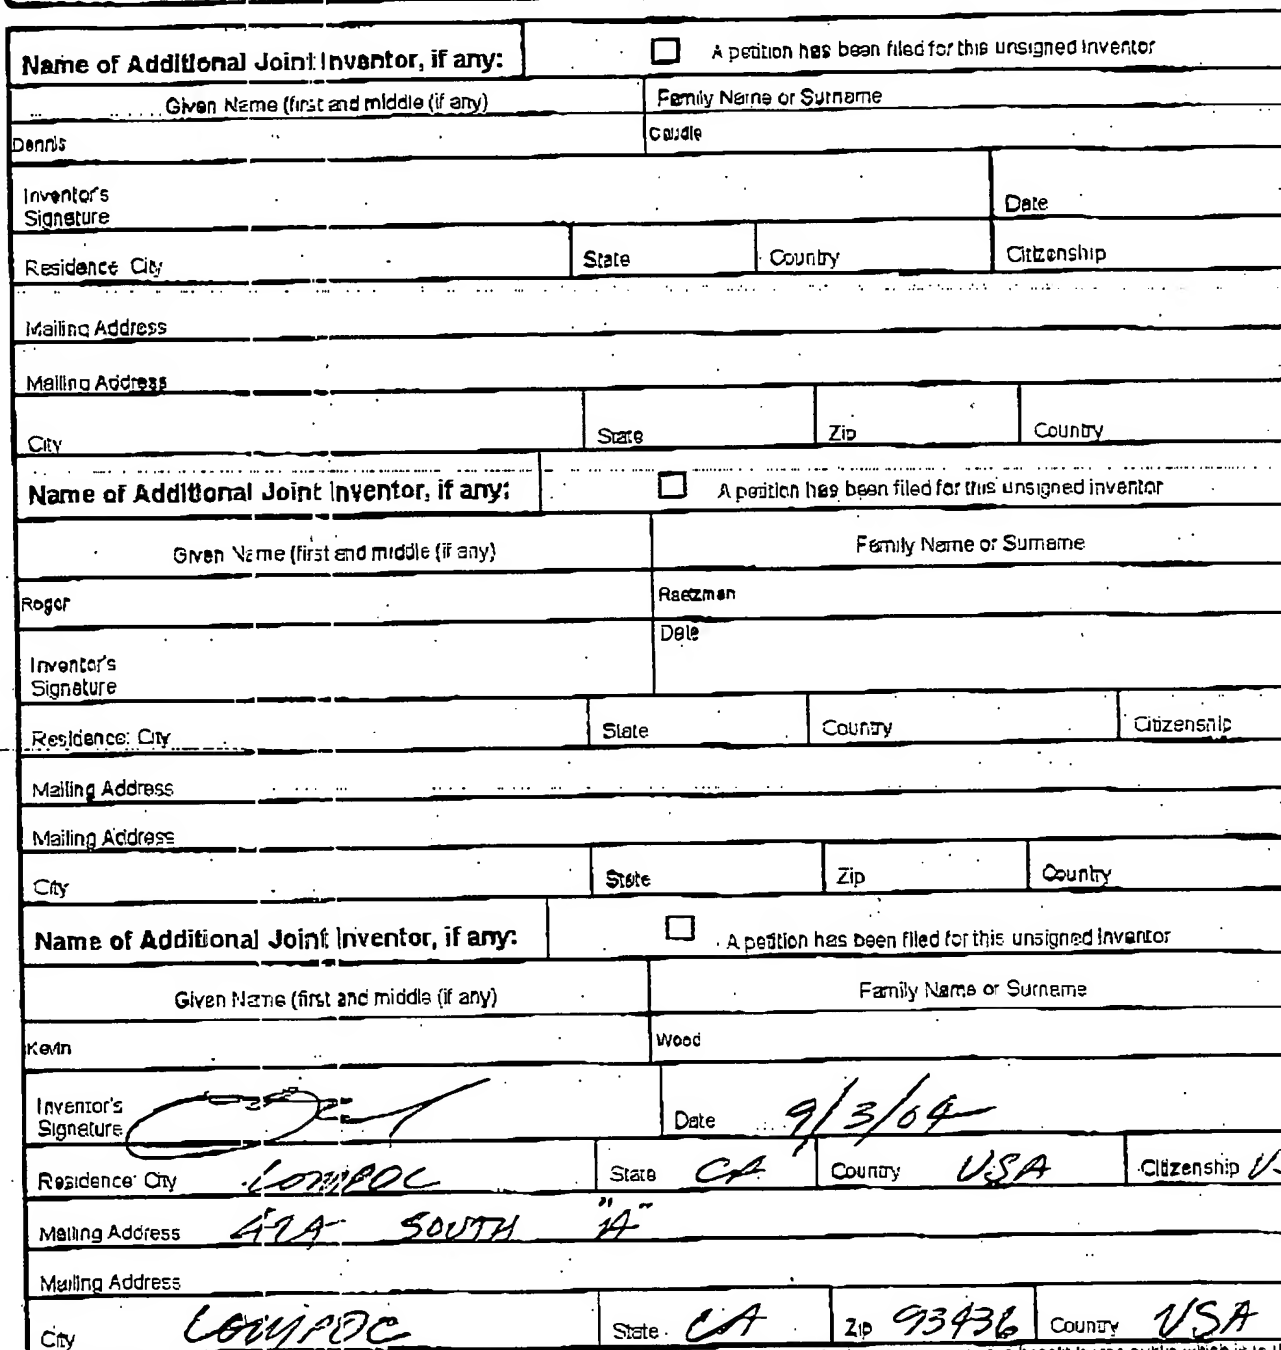 Name of Additional Joint Inventor, if any: A petition has been filed for this unsigned inventor
Given Name (first and middle (if any) Family Name or Surname
Dennis Caudle
Inventor's Signature Date
Residence: City State Country Citizenship
Mailing Address
Mailing Address
City State Zip Country
Name of Additional Joint Inventor, if any: A petition has been filed for this unsigned inventor
Given Name (first and middle (if any) Family Name or Surname
Roger Raetzman
Inventor's Signature Date
Residence: City State Country Citizenship
Mailing Address
Mailing Address
City State Zip Country
Name of Additional Joint Inventor, if any: A petition has been filed for this unsigned inventor
Given Name (first and middle (if any) Family Name or Surname
Kevin Wood
Inventor's Signature Date 9/3/04
Residence: City LOMPOC State CA Country USA Citizenship
Mailing Address SOUTH "A"
Mailing Address
City LOMPOC State CA Zip 93436 Country USA